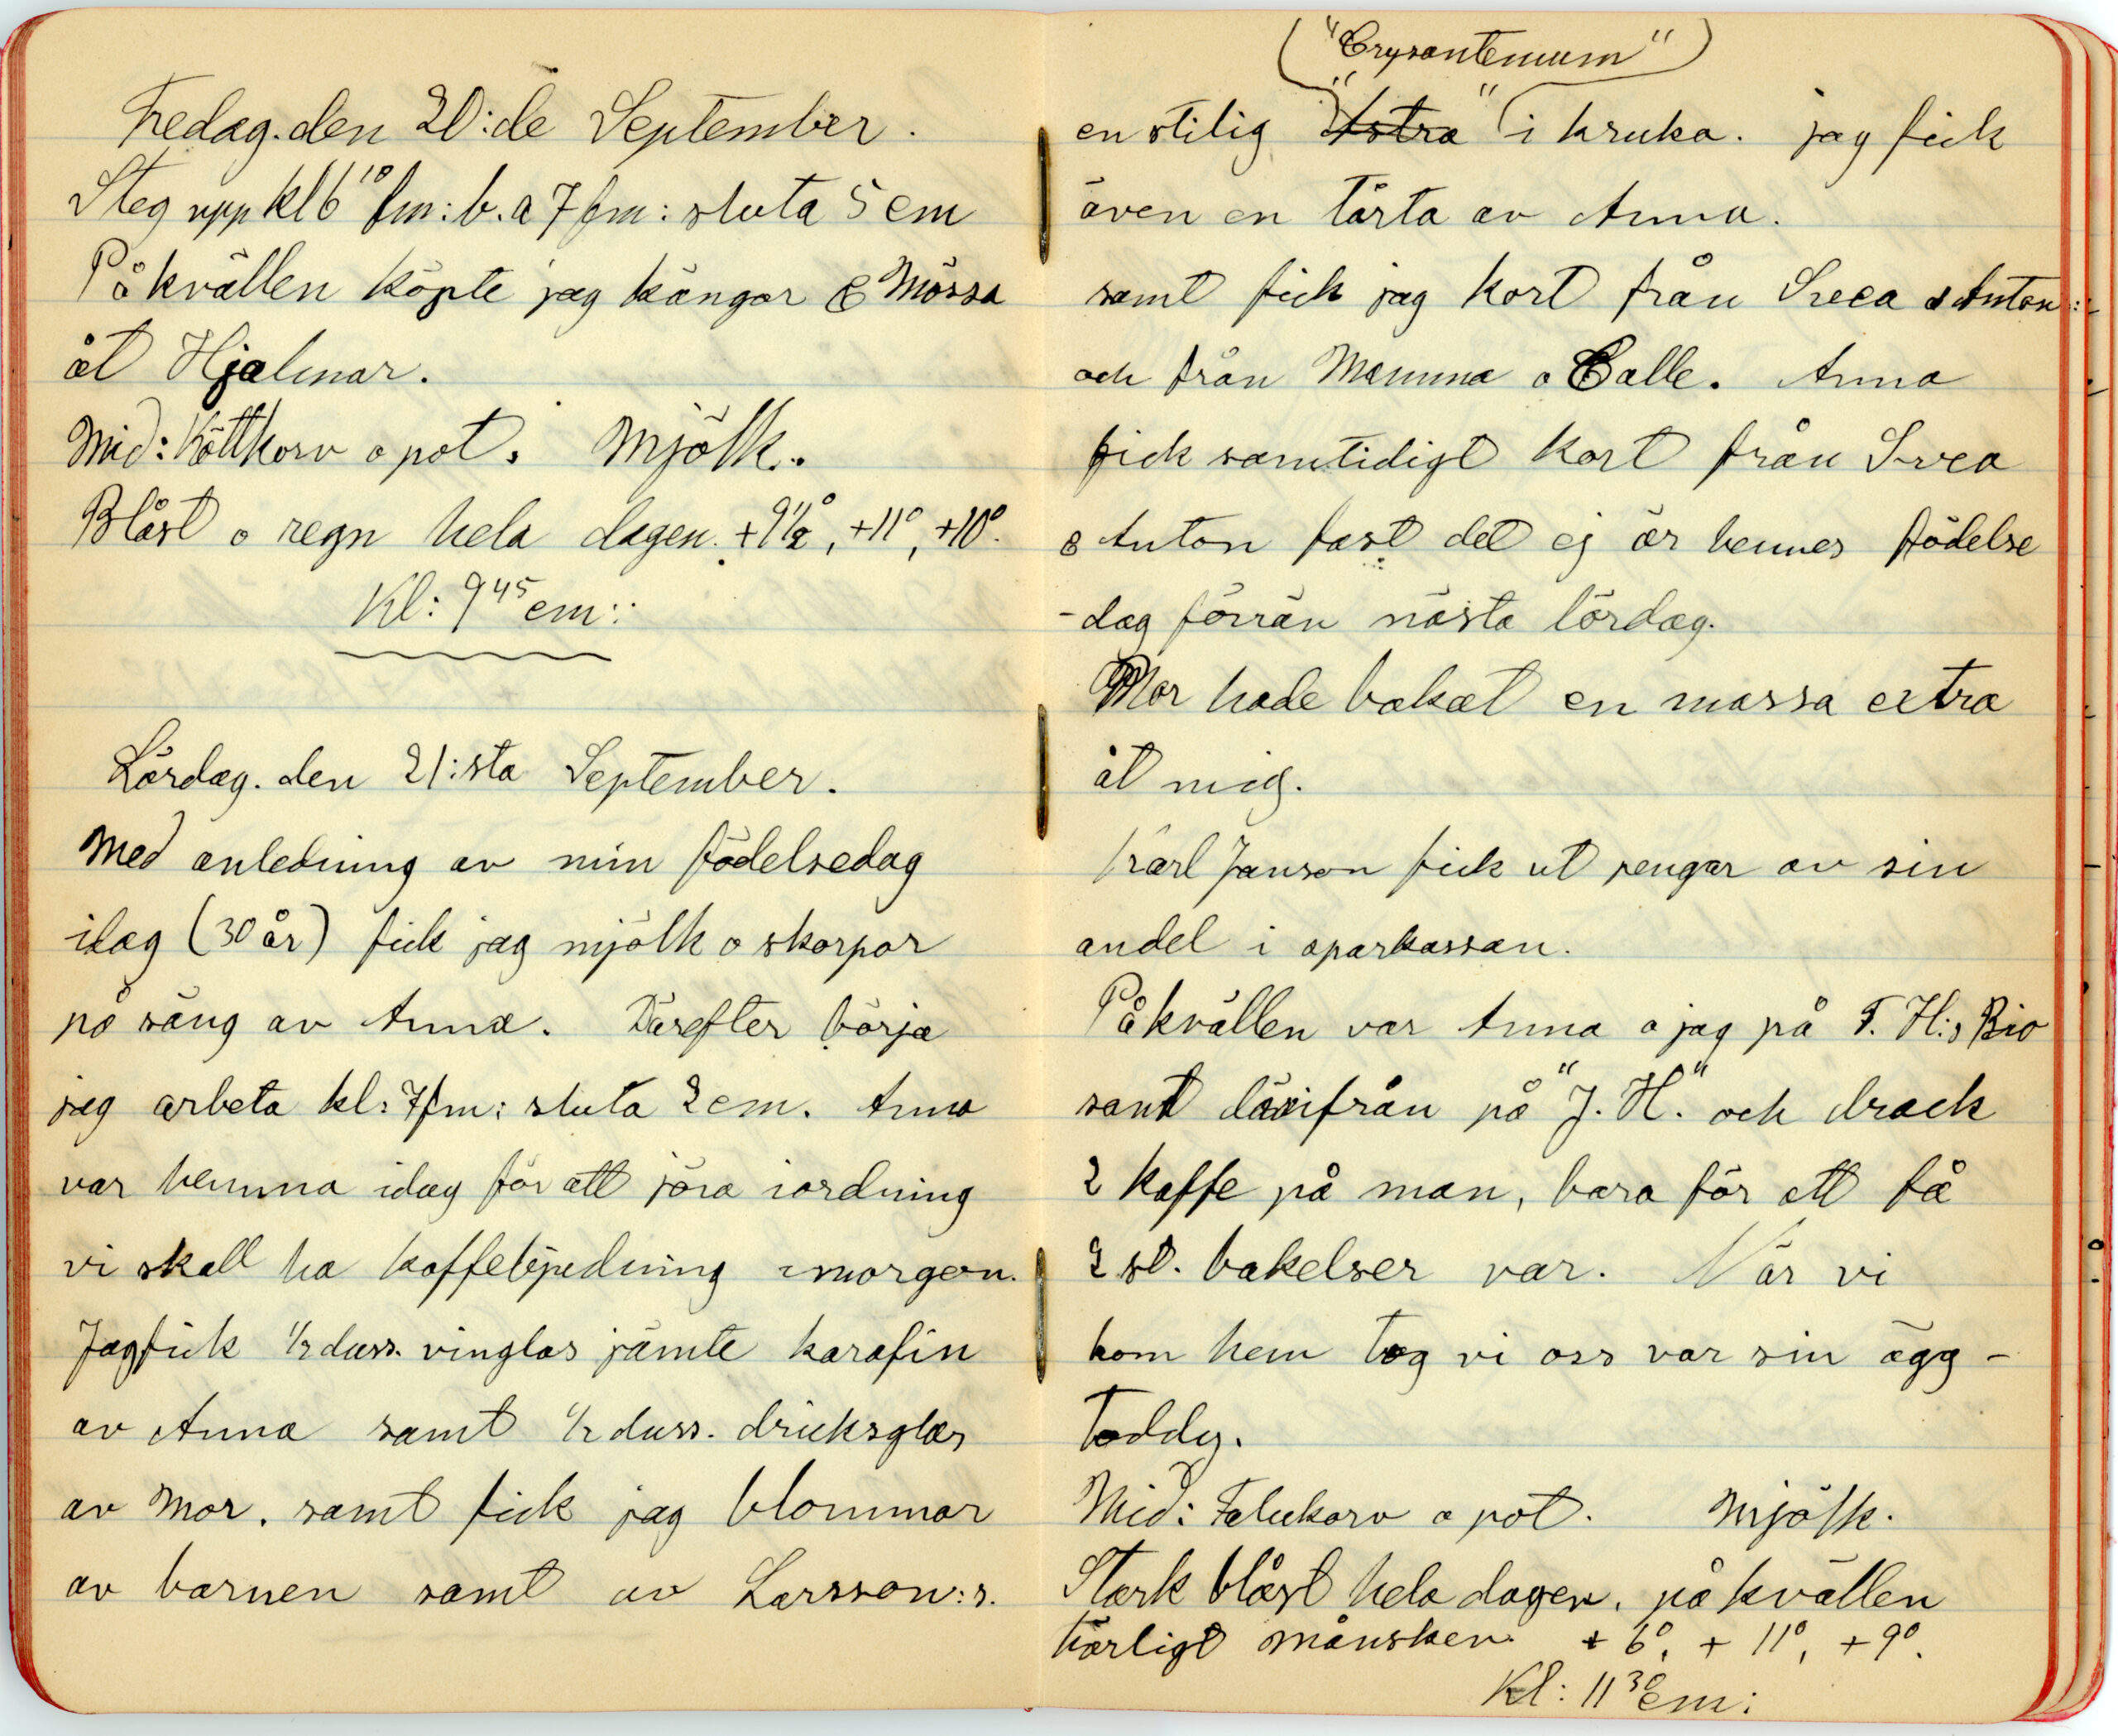 Fredag. den 20:de September.
Steg upp kl 6¹⁰ fm: b. a 7 fm: sluta 5 em
På kvällen köpte jag kängor & Mössa
åt Hjalmar.
Mid: Köttkorv o pot. Mjölk.
Blåst o regn hela dagen. +9½°, +11°, +10°.
Kl: 9⁴⁵ em:
Lördag. den 21:sta September.
Med anledning av min födelsedag
idag (30 år) fick jag mjölk o skorpor
på säng av Anna. Därefter börja
jag arbeta kl: 7 fm: sluta 2 em. Anna
var hemma idag för att jöra iordning
vi skall ha kaffebjudning imorgon.
Jag fick ½ duss. vinglas jämte karafin
av Anna samt ½ duss. dricksglas
av Mor. samt fick jag blommor
av barnen samt av Larsson:s.
"Crysantemum"
en stilig "Astra" i kruka. jag fick
även en tårta av Anna.
samt fick jag kort från Svea & Anton:
och från Mamma o Calle. Anna
fick samtidigt kort från Svea
& Anton fast det ej är hennes födelse
-dag förrän nästa lördag.
Mor hade bakat en massa extra
åt mig.
Karl Janson fick ut pengar av sin
andel i sparkassan.
På kvällen var Anna o jag på F. H:s Bio
samt därifrån på "J. H." och drack
2 kaffe på man, bara för att få
2 st. bakelser var. När vi
kom hem tog vi oss var sin ägg-
toddy.
Mid: Falukorv o pot. Mjölk.
Stark blåst hela dagen. på kvällen
härligt månsken. + 6°, + 11°, + 9°.
Kl: 11³⁰ em: